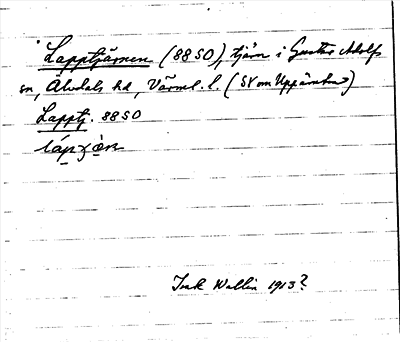 Lapptjärnen (88 SO), tjärn i Gustav Adolfs
sn, Älvdals hd, Värml. l. (SV om Uppämten)
Lapptj. 88 SO
Wallin 1913?